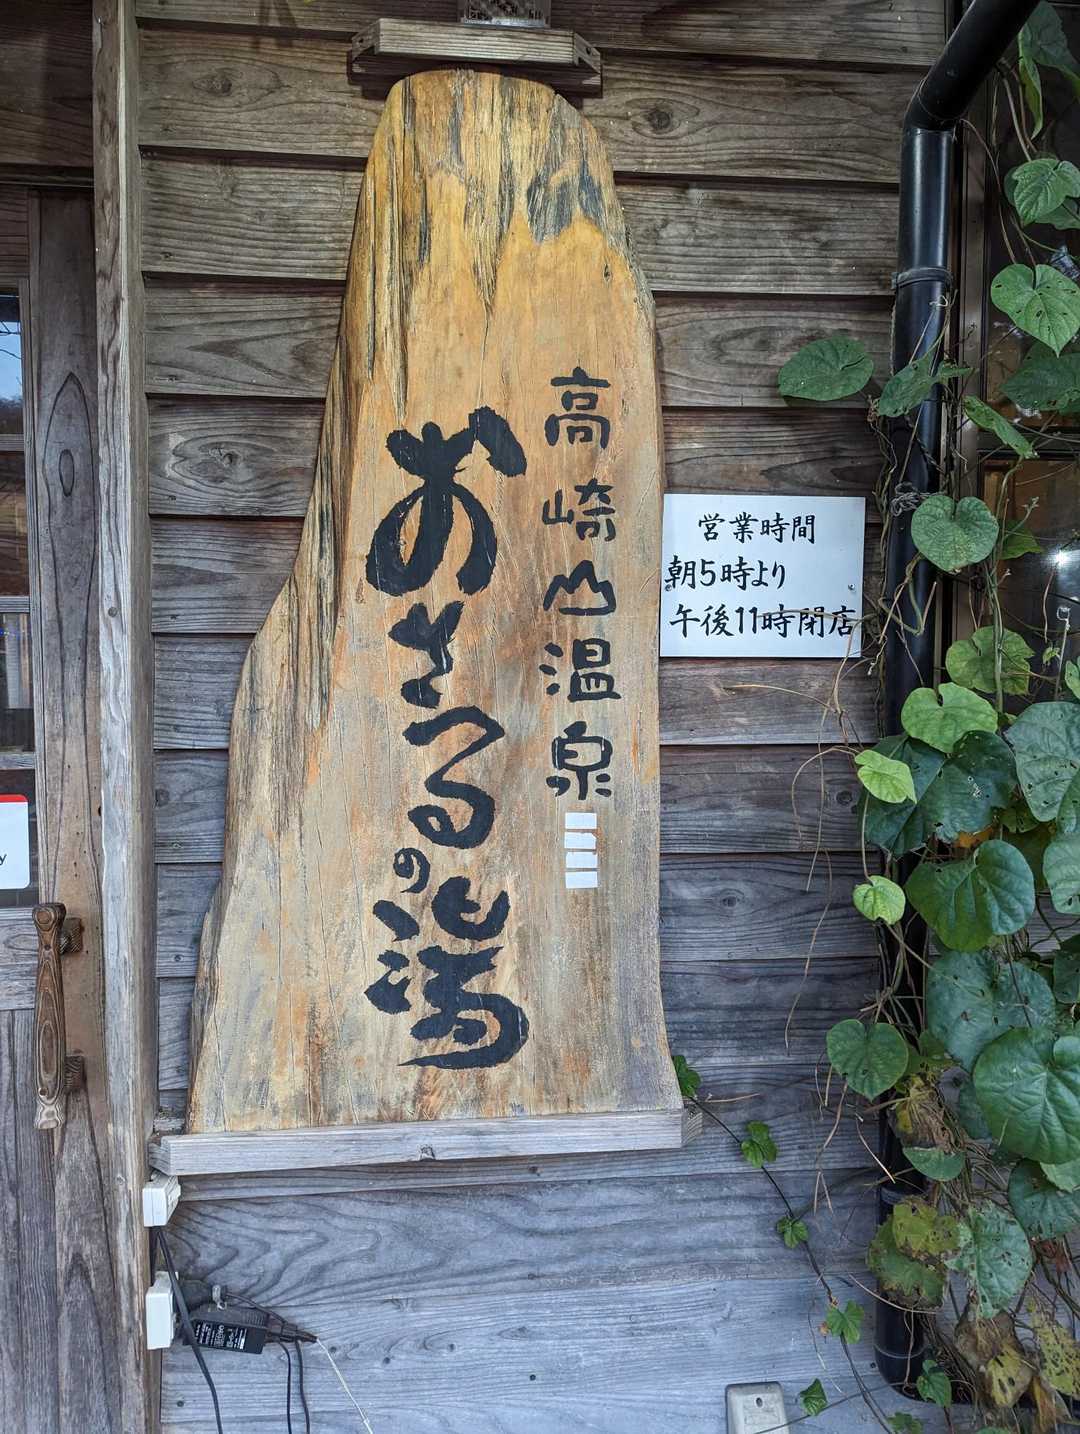 高崎山温泉
おさるの湯
営業時間
朝5時より
午後11時閉店
y